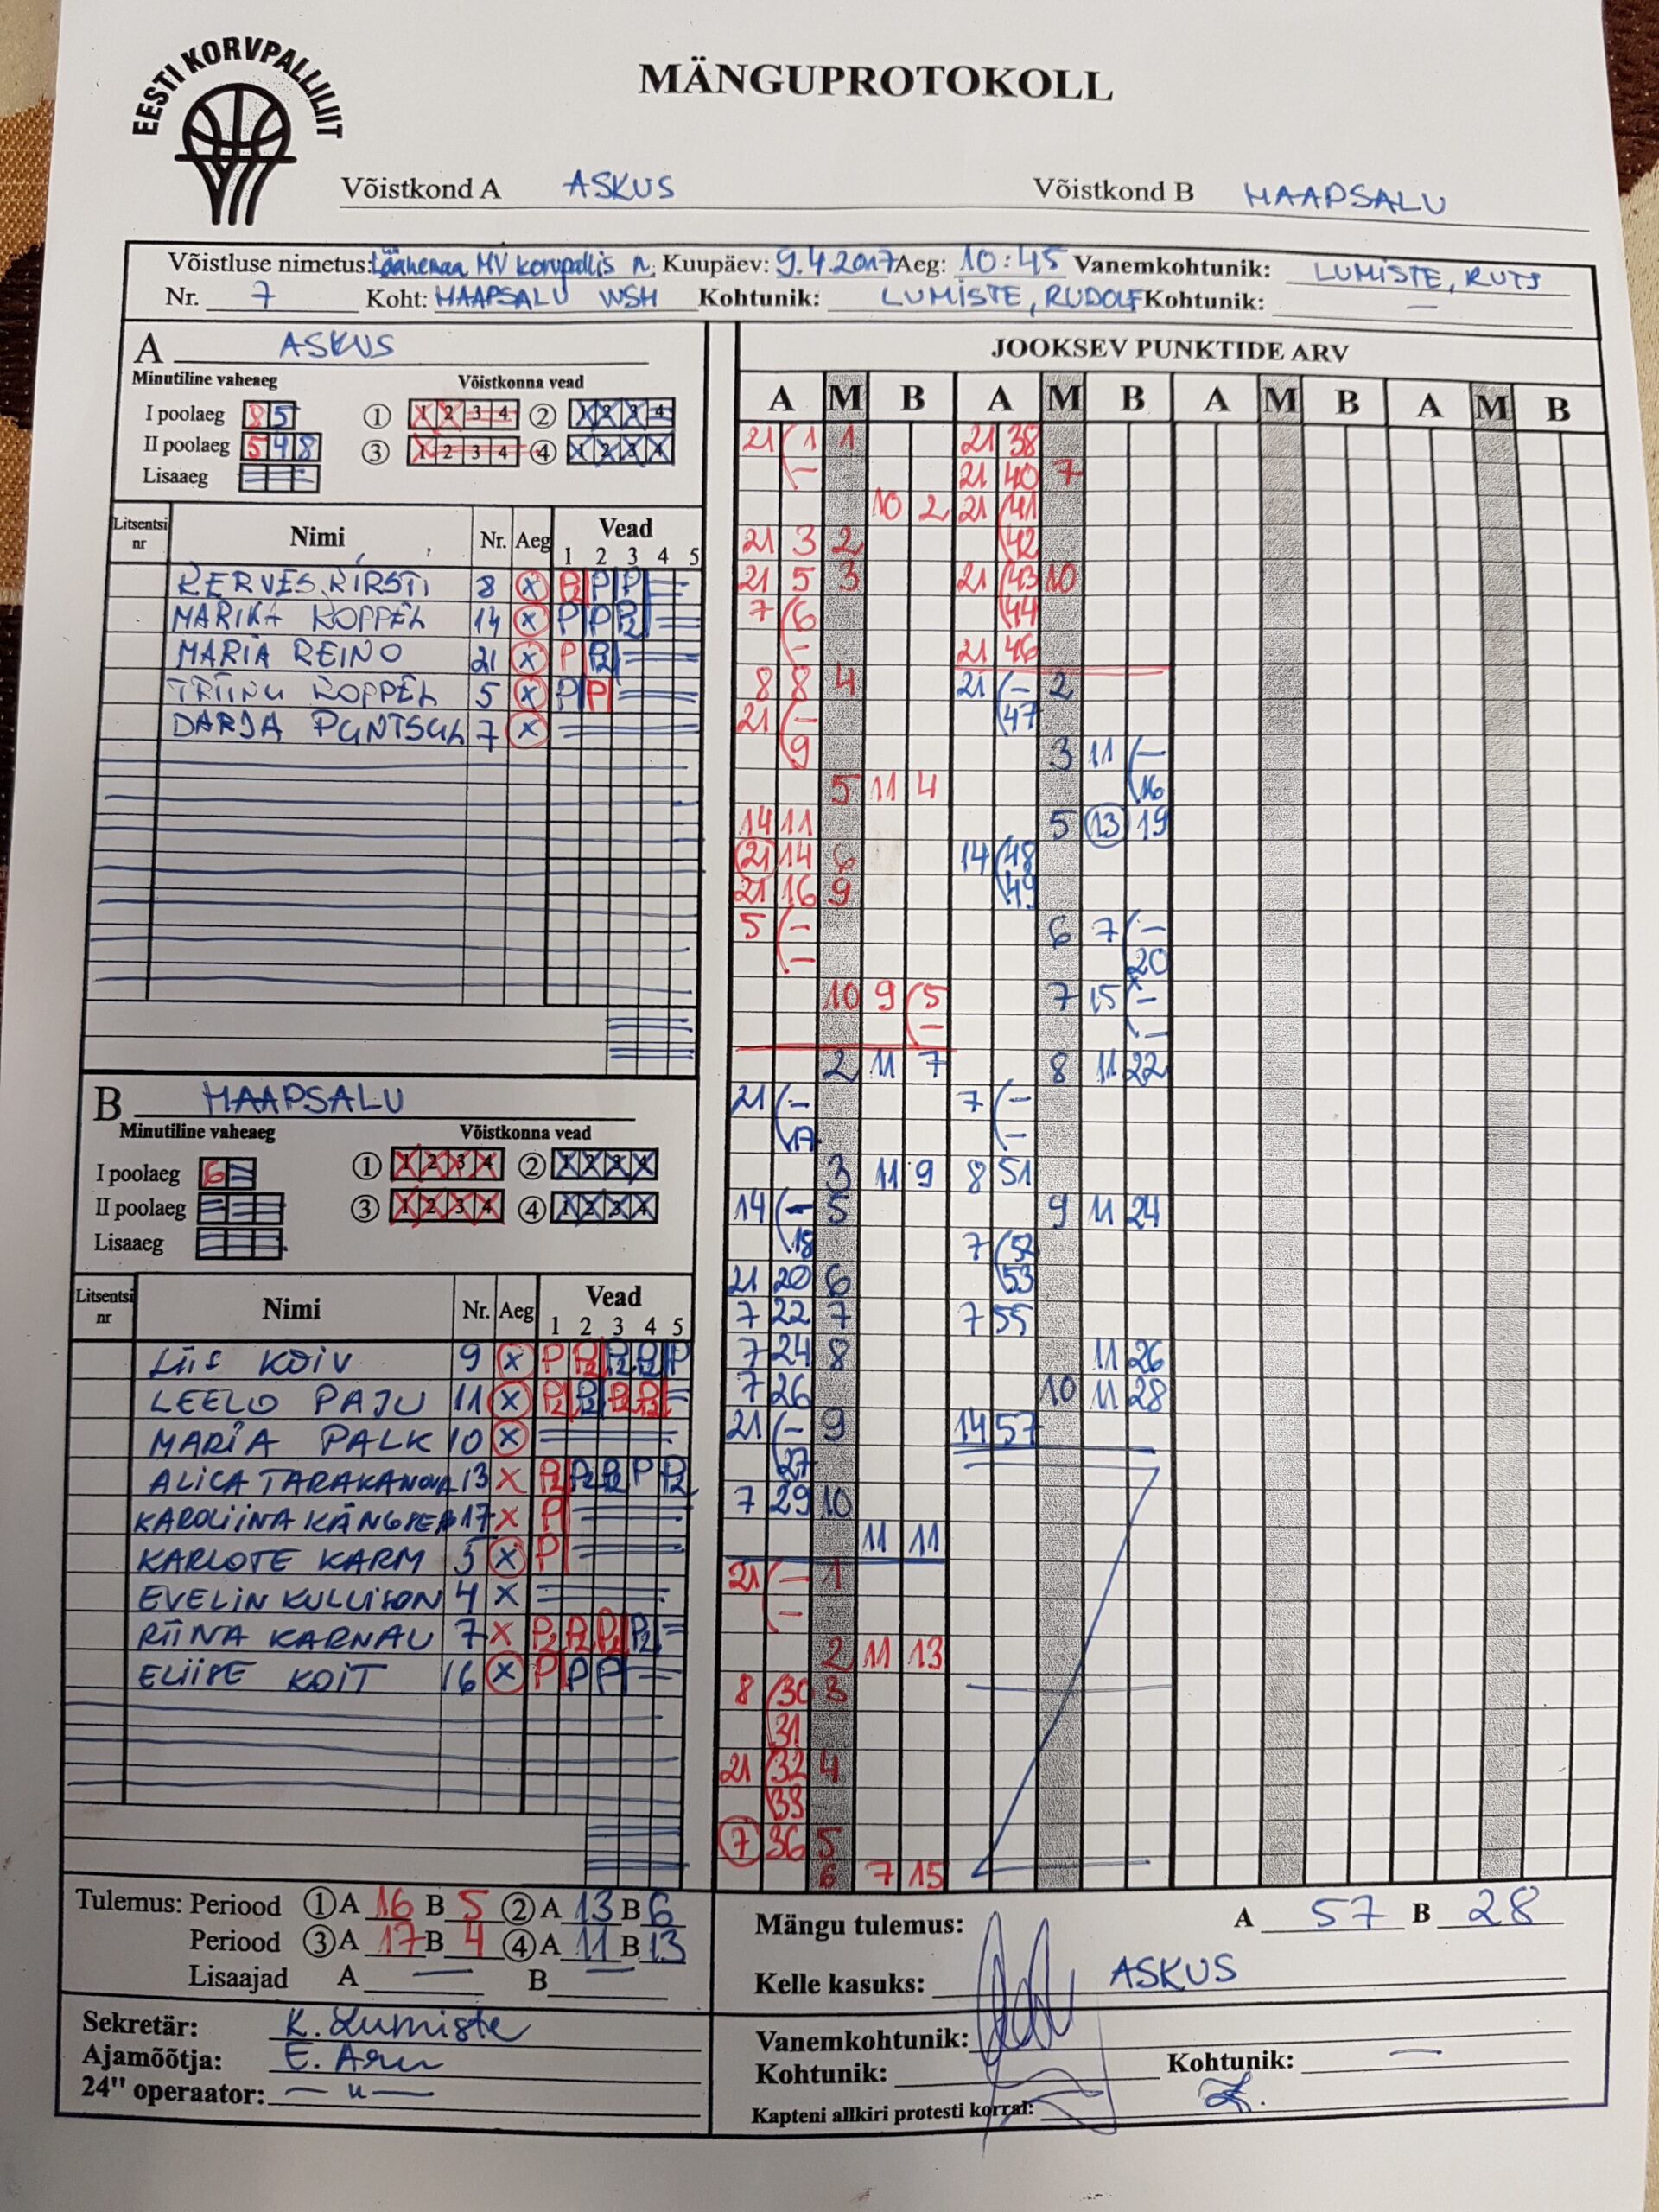 EESTI KORVPALLILIIT
MÄNGUPROTOKOLL
Võistkond A ASKUS Võistkond B HAAPSALU
Võistluse nimetus: Läänemaa MV korvpallis n. Kuupäev: 9.4.2017 Aeg: 10:45 Vanemkohtunik: LUMISTE, RUTS
Nr. 7 Koht: HAAPSALU WSH Kohtunik: LUMISTE, RUDOLF Kohtunik: —
A ASKUS
Minutiline vaheaeg Võistkonna vead
I poolaeg 8 5 ① 1 2 3 4 ② 1 2 3 4
II poolaeg 5 9 8 ③ 1 2 3 4 ④ 1 2 3 4
Lisaaeg
Litsentsi nr Nimi Nr. Aeg Vead 1 2 3 4 5
KERVES KIRSTI 8 X P2 P P
MARIKA KOPPEL 14 X P P P2
MARIA REINO 21 X P P2
TRIINU KOPPEL 5 X P P
DARJA PUNTSUL 7 X
B HAAPSALU
Minutiline vaheaeg Võistkonna vead
I poolaeg 6 ① 1 2 3 4 ② 1 2 3 4
II poolaeg ③ 1 2 3 4 ④ 1 2 3 4
Lisaaeg
Litsentsi nr Nimi Nr. Aeg Vead 1 2 3 4 5
LIIS KÕIV 9 X P P2 P2 P2 P
LEELO PAJU 11 X P2 P2 P2 P2
MARIA PALK 10 X
ALICA TARAKANOVA 13 X P2 P2 P2 P P2
KAROLIINA KÄNGSEP 17 X P
KARLOTE KARM 5 X P
EVELIN KULLISON 4 X
RIINA KARNAU 7 X P2 P2 P2 P2
ELIISE KOIT 16 X P P P
Tulemus: Periood ① A 16 B 5 ② A 13 B 6
Periood ③ A 17 B 4 ④ A 11 B 13
Lisaajad A — B —
Sekretär: K. Lumiste
Ajamõõtja: E. Aru
24" operaator: — u —
JOOKSEV PUNKTIDE ARV
A M B A M B A M B A M B
21 1 1 21 38
— 21 40 7
10 2 21 41
21 3 2 42
21 5 3 21 43 10
7 6 44
— 21 46
8 8 4 21 — 2
21 — 47
9 3 11 —
5 11 4 16
14 11 5 13 19
21 14 6 14 48
21 16 9 49
5 — 6 7 —
— 20
10 9 5 7 15 —
— —
2 11 7 8 11 22
21 — 7 —
17 —
3 11 9 8 51
14 — 5 9 11 24
18 7 52
21 20 6 53
7 22 7 7 55
7 24 8 11 26
7 26 10 11 28
21 — 9 14 57
27
7 29 10
11 11
21 — 1
—
2 11 13
8 30 3
31
21 32 4
33
7 36 5
6 7 15
Mängu tulemus: A 57 B 28
Kelle kasuks: ASKUS
Vanemkohtunik:
Kohtunik: Kohtunik: —
Kapteni allkiri protesti korral: